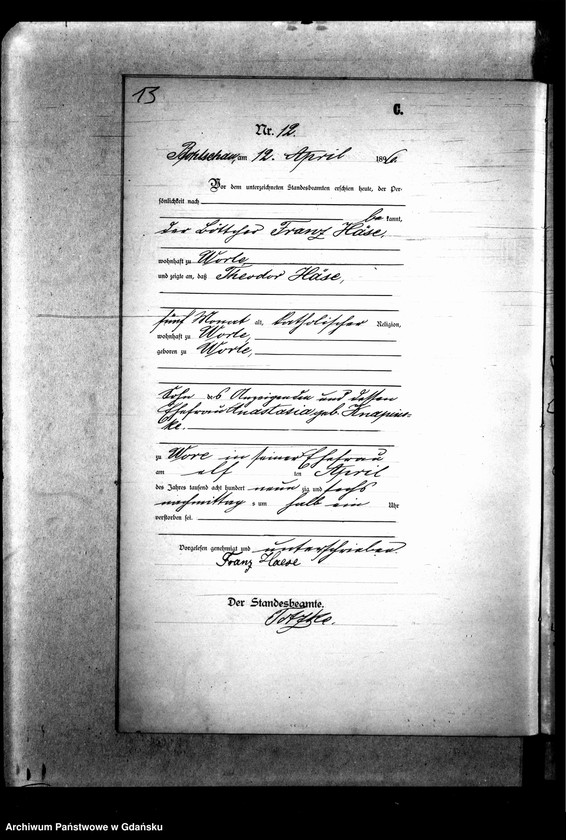 13
C.
Nr. 12.
Bohlschau, am 12. April 1896.
Vor dem unterzeichneten Standesbeamten erschien heute, der Per-
sönlichkeit nach
be kannt,
der Böttcher Franz Häse,
wohnhaft zu Worle,
und zeigte an, daß Theodor Häse,
fünf Monat alt, katholischer Religion,
wohnhaft zu Worle,
geboren zu Worle,
Sohn des Anzeigenden und dessen
Ehefrau Anastasia geb. Knapins-
ke.
zu Wore in seiner Ehefrau
am elf ten April
des Jahres tausend acht hundert neun zig und sechs
nachmittag s um halb ein Uhr
verstorben sei.
Vorgelesen, genehmigt und unterschrieben.
Franz Haese
Der Standesbeamte.
Archiwum Państwowe w Gdańsku